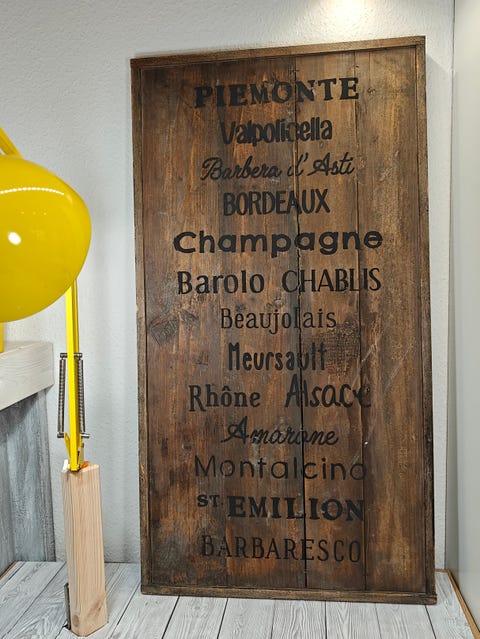 PIEMONTE
Valpolicella
Barbera d'Asti
BORDEAUX
Champagne
Barolo CHABLIS
Beaujolais
Meursault
Rhône Alsace
Amarone
Montalcino
ST. EMILION
BARBARESCO